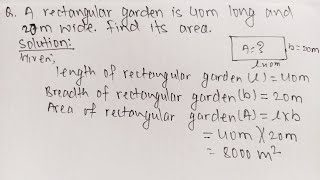 Q. A rectangular garden is 40m long and
20m wide. find its area.
Solution:
Given;
A=?
b=20m
l40m
length of rectangular garden(l)=40m
Breadth of rectangular garden(b)=20m
Area of rectangular garden(A)=lxb
=40m)(20m
=8000m²